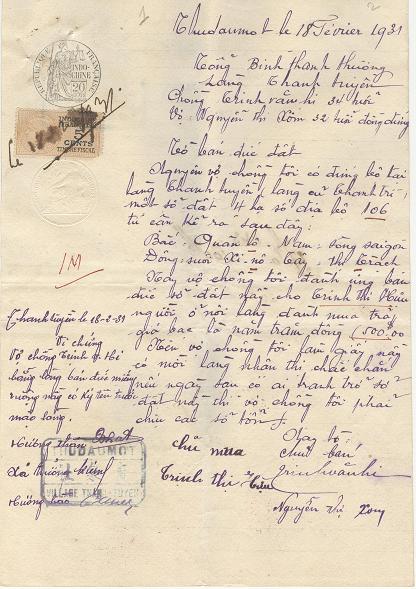 1
2
Thudaumot le 18 Février 1931
RÉPUBLIQUE FRANÇAISE
INDO-
CHINE
20
Tổng Bình thanh thượng
Làng Thanh tuyền
Chồng Trịnh văn hi 34 tuổi
Vợ Nguyễn thị Xôm 32 tuổi đồng đứng
5
CENTS
TIMBRE FISCAL
Le
Tờ bán dứt đất
Nguyên vợ chồng tôi có đứng bộ tại
làng Thanh tuyền (làng cũ Thanh trì)
một sở đất 4 hạ số địa bộ 106
tứ cận kể ra sau đây:
Bắc: Quản lộ, Nam: sông saigon
Đông: suối Xi-nô Tây: Thị Trạch
1M
Nay vợ chồng tôi đành ưng bán
dứt sở đất nầy cho Trịnh thị Hữu
người ở nơi làng đành mua trả
giá bạc là năm trăm đồng (500$00
Nếu vợ chồng tôi làm giấy nầy
có mời làng nhận thị chắc chắn
nếu ngày sau có ai tranh trở sở
đất nầy thì vợ chồng tôi phải
chịu các sở tổn
Thanh tuyền le 18-2-31
Vi chứng
Vợ chồng Trịnh v. Hi
bằng lòng bán dứt miếng
ruộng nầy có ký tên trước
mặt làng
Hương thân
Xã trưởng
Hương hào
THUDAUMOT
VILLAGE THANH TUYEN
chủ mua
Trịnh thị Hữu
Nay tờ
Chủ bán
Trịnh văn hi
Nguyễn thị Xom